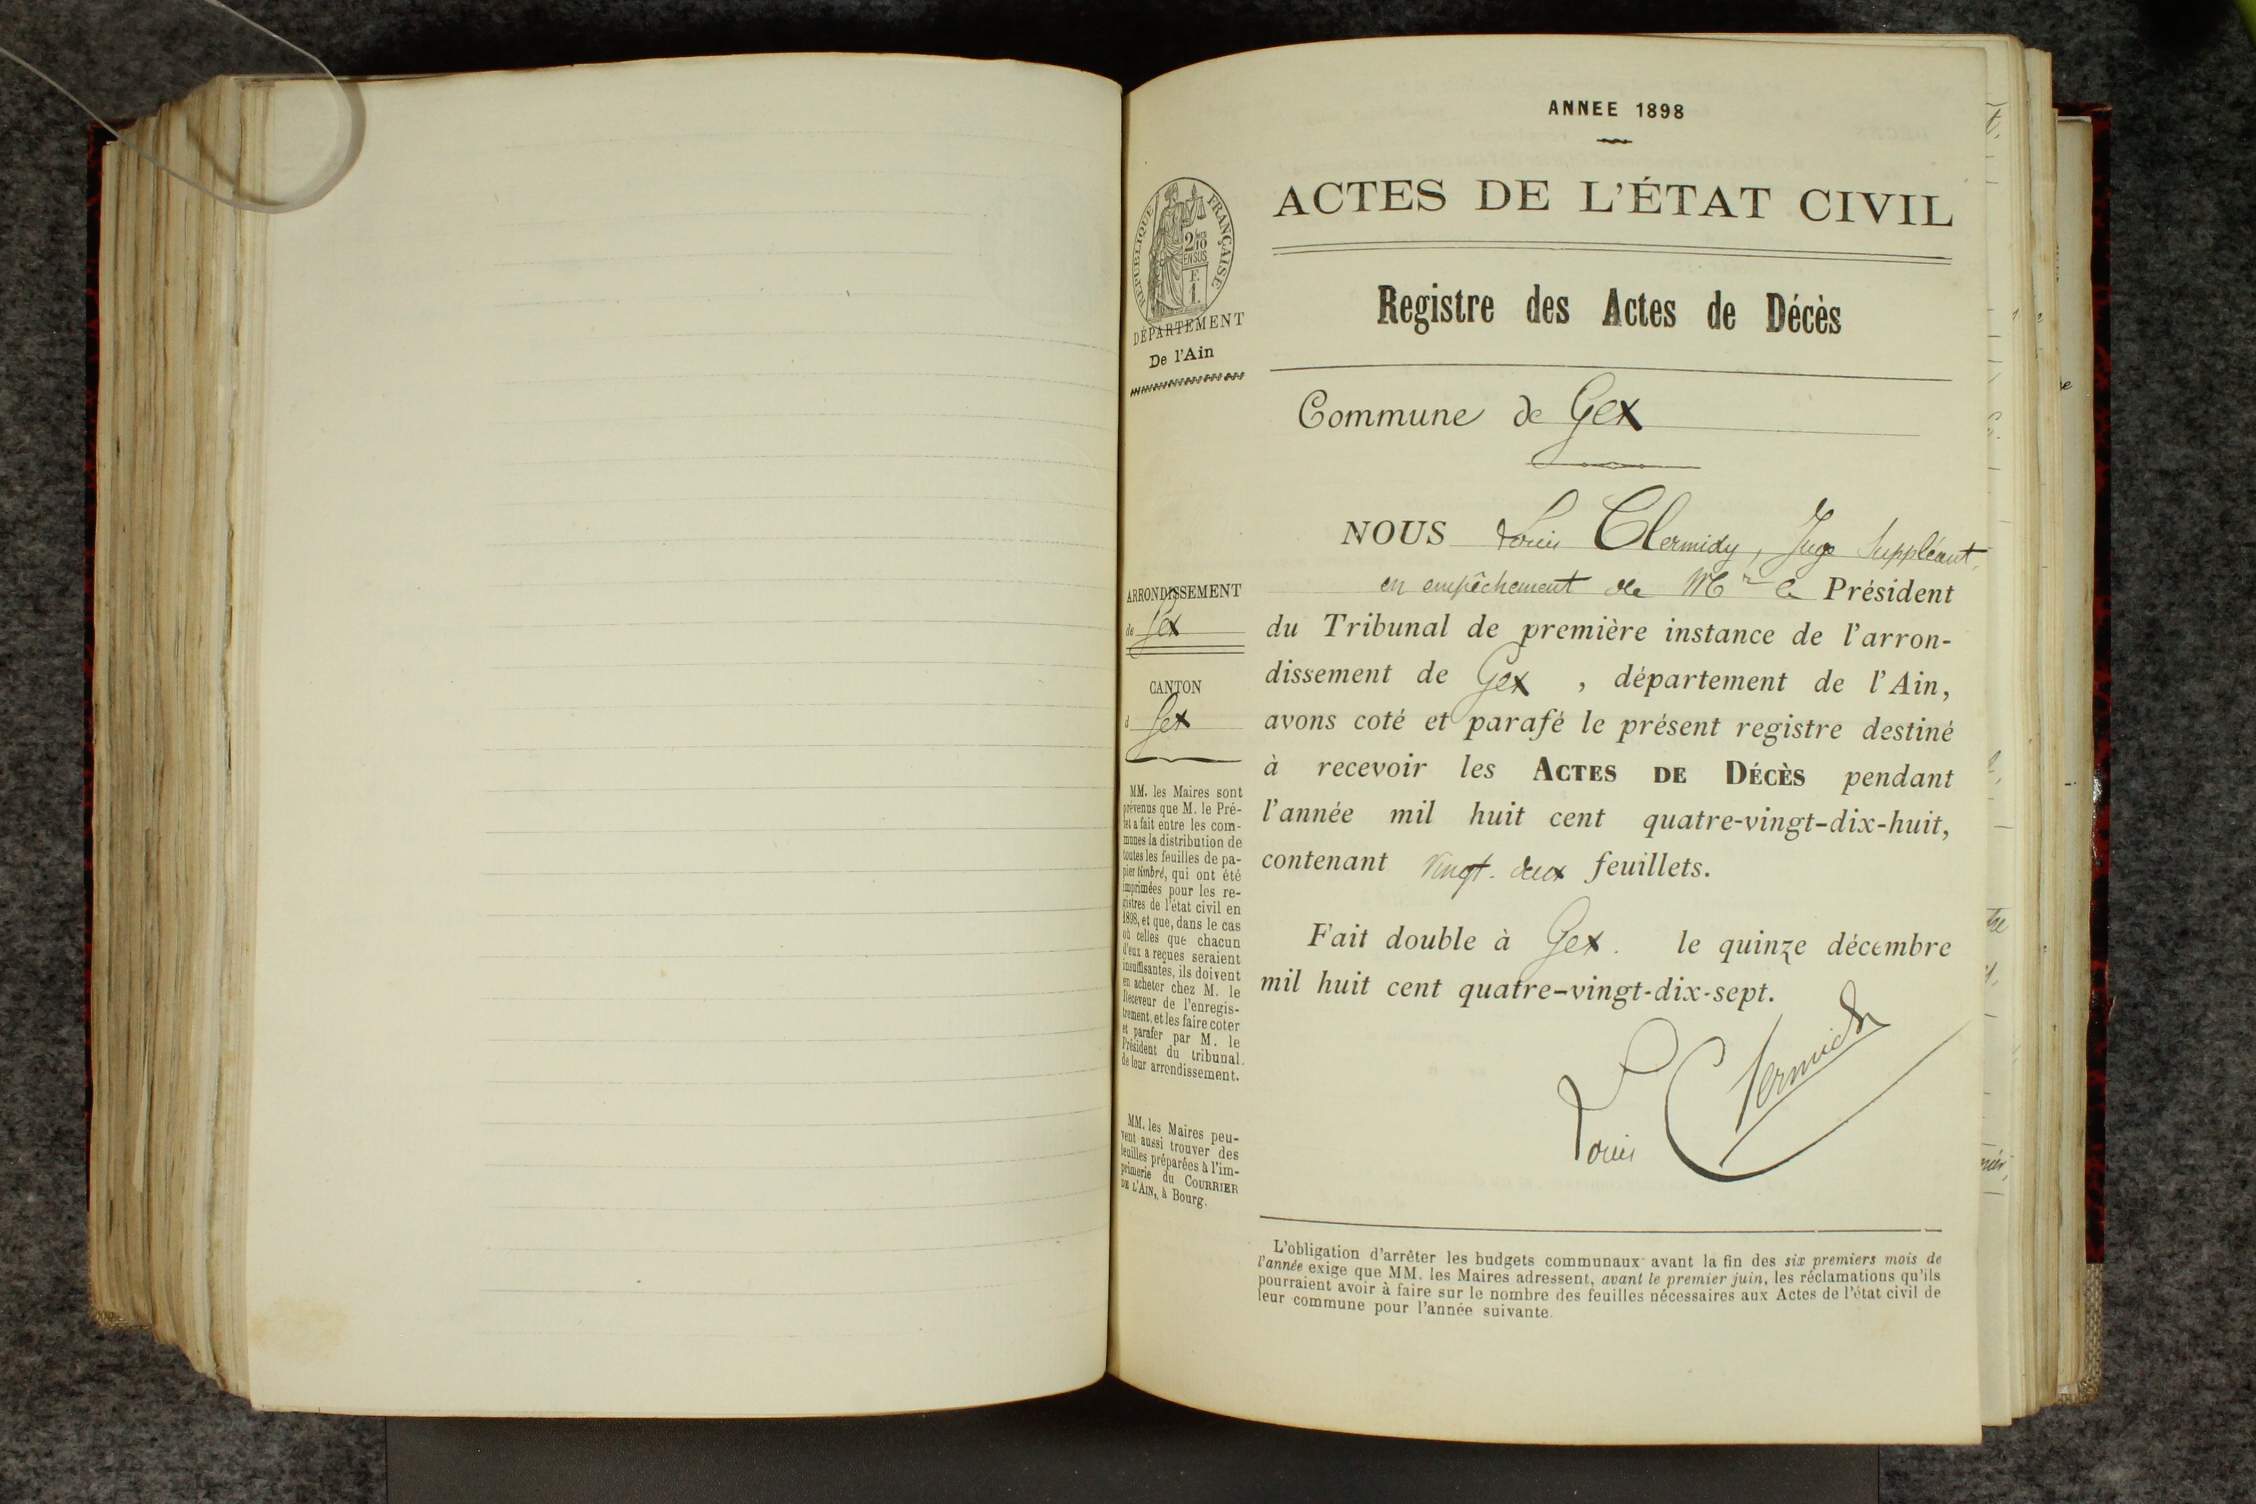 ANNEE 1898
ACTES DE L'ÉTAT CIVIL
Registre des Actes de Décès
Commune de Gex
NOUS Louis Clermidy, Juge Suppléant,
en empêchement de Mr le Président
du Tribunal de première instance de l'arron-
dissement de Gex , département de l'Ain,
avons coté et parafé le présent registre destiné
à recevoir les ACTES DE DÉCÈS pendant
l'année mil huit cent quatre-vingt-dix-huit,
contenant vingt-deux feuillets.
Fait double à Gex. le quinze décembre
mil huit cent quatre-vingt-dix-sept.
Louis Clermidy
L'obligation d'arrêter les budgets communaux avant la fin des six premiers mois de
l'année exige que MM. les Maires adressent, avant le premier juin, les réclamations qu'ils
pourraient avoir à faire sur le nombre des feuilles nécessaires aux Actes de l'état civil de
leur commune pour l'année suivante.
RÉPUBLIQUE FRANÇAISE
2 10
EN SUS
F.
1.
DÉPARTEMENT
De l'Ain
ARRONDISSEMENT
de Gex
CANTON
d Gex
MM. les Maires sont
prévenus que M. le Pré-
fet a fait entre les com-
munes la distribution de
toutes les feuilles de pa-
pier timbré, qui ont été
imprimées pour les re-
gistres de l'état civil en
1898, et que, dans le cas
où celles que chacun
d'eux a reçues seraient
insuffisantes, ils doivent
en acheter chez M. le
Receveur de l'enregis-
trement, et les faire coter
et parafer par M. le
Président du tribunal
de leur arrondissement.
MM. les Maires peu-
vent aussi trouver des
feuilles préparées à l'im-
primerie du COURRIER
DE L'AIN, à Bourg.